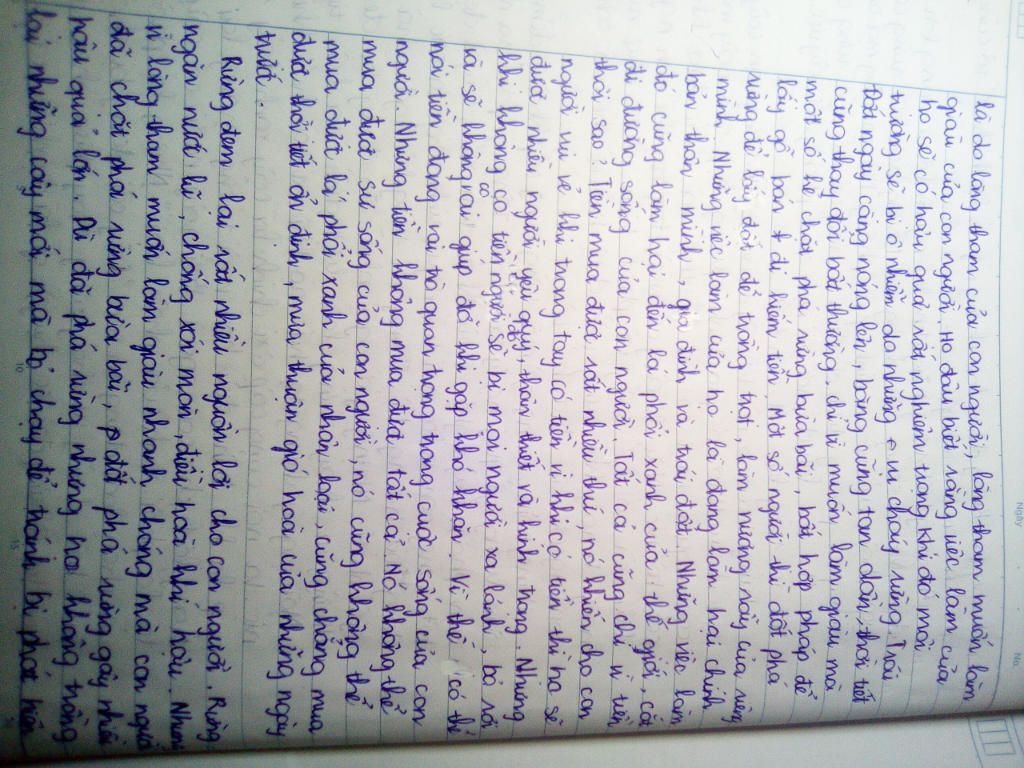 là do lòng tham của con người, lòng tham muốn làm
giàu của con người. Họ đâu biết rằng việc làm của
họ sẽ có hậu quả rất nghiêm trọng khi đó môi
trường sẽ bị ô nhiễm do những vụ cháy rừng. Trái
Đất ngày càng nóng lên, băng cũng tan dần, thời tiết
cũng thay đổi bất thường. chỉ vì muốn làm giàu mà
một số kẻ chặt phá rừng bừa bãi, bất hợp pháp để
lấy gỗ bán đi kiếm tiền. Một số người thì đốt phá
rừng để lấy đất để trồng trọt, làm nương rẫy của riêng
mình. Những việc làm của họ là đang làm hại chính
bản thân mình, gia đình và trái đất. Những việc làm
đó cũng làm hại đến lá phổi xanh của thế giới, cái
đi đường sống của con người. Tất cả cũng chỉ vì tiền
thôi sao? Tiền mua được rất nhiều thứ nó khiến cho con
người vui vẻ khi trong tay có tiền vì khi có tiền thì họ sẽ
được nhiều người yêu quý, thân thiết và kính trọng. Nhưng
khi không có tiền người sẽ bị mọi người xa lánh, bỏ rơi
và sẽ không ai giúp đỡ khi gặp khó khăn. Vì thế có thể
nói tiền đóng vai trò quan trọng trong cuộc sống của con
người. Nhưng tiền không mua được tất cả. Nó không thể
mua được sự sống của con người, nó cũng không thể
mua được lá phổi xanh của nhân loại cũng chẳng mua
được thời tiết ổn định, mưa thuận gió hoà của những ngày
trước.
Rừng đem lại rất nhiều nguồn lợi cho con người. Rừng
ngăn nước lũ, chống xói mòn, điều hoà khí hậu. Nhưng
vì lòng tham muốn làm giàu nhanh chóng mà con người
đã chặt phá rừng bừa bãi, đốt phá rừng gây nhiều
hậu quả lớn. Dù đốt phá rừng nhưng họ không trồng
lại những cây mới mà bỏ chạy để tránh bị phát hiện